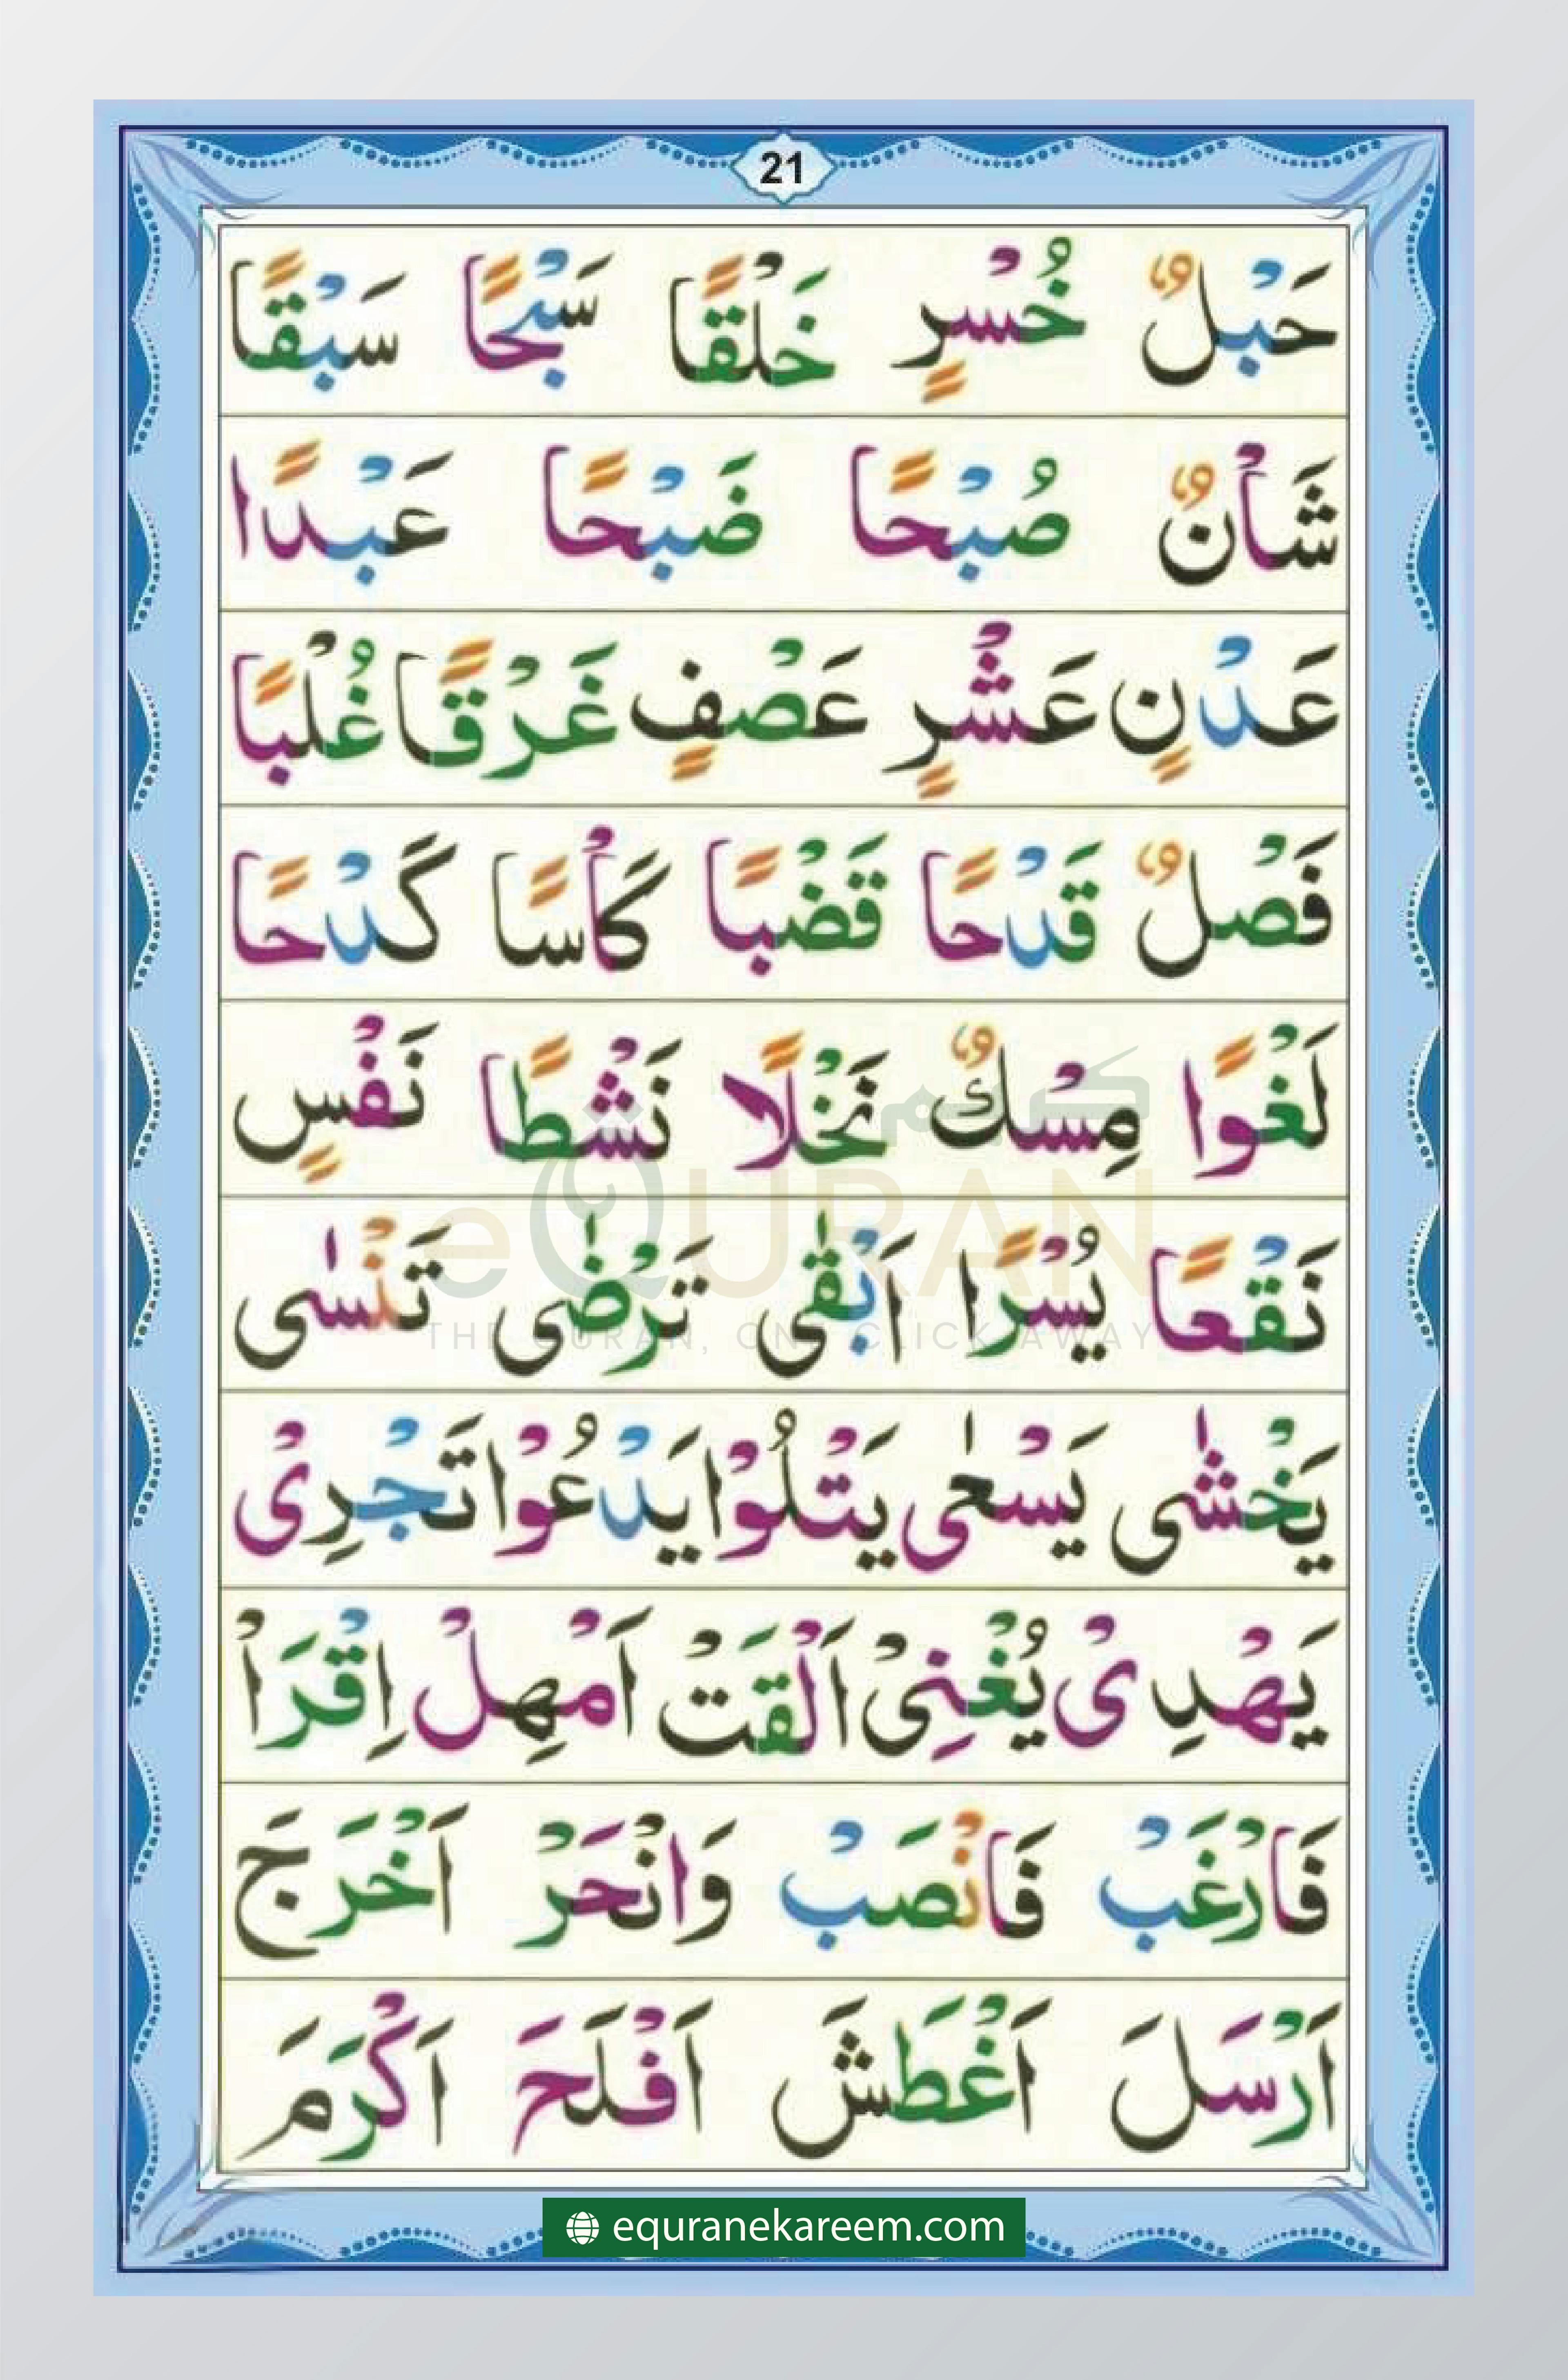 21
حَبْلٌ خُسْرٍ خَلْقًا سَبْحًا سَبْقًا
شَأْنٌ صُبْحًا ضَبْحًا عَبْدًا
عَدْنٍ عَشْرٍ عَصْفٍ غَرْقًا غُلْبًا
فَصْلٌ قَدْحًا قَضْبًا كَأْسًا كَدْحًا
لَغْوًا مِسْكٌ نَخْلًا نَشْطًا نَفْسٍ
نَقْعًا يُسْرًا اَبْقٰى تَرْضٰى تَنْسٰى
يَخْشٰى يَسْعٰى يَتْلُوْا يَدْعُوْا تَجْرِىْ
يَهْدِىْ يُغْنِىْ اَلْقَتْ اَمْهِلْ اِقْرَاْ
فَارْغَبْ فَانْصَبْ وَانْحَرْ اَخْرَجَ
اَرْسَلَ اَغْطَشَ اَفْلَحَ اَكْرَمَ
كريم
eQURAN
THE QURAN, ONE CLICK AWAY
equranekareem.com